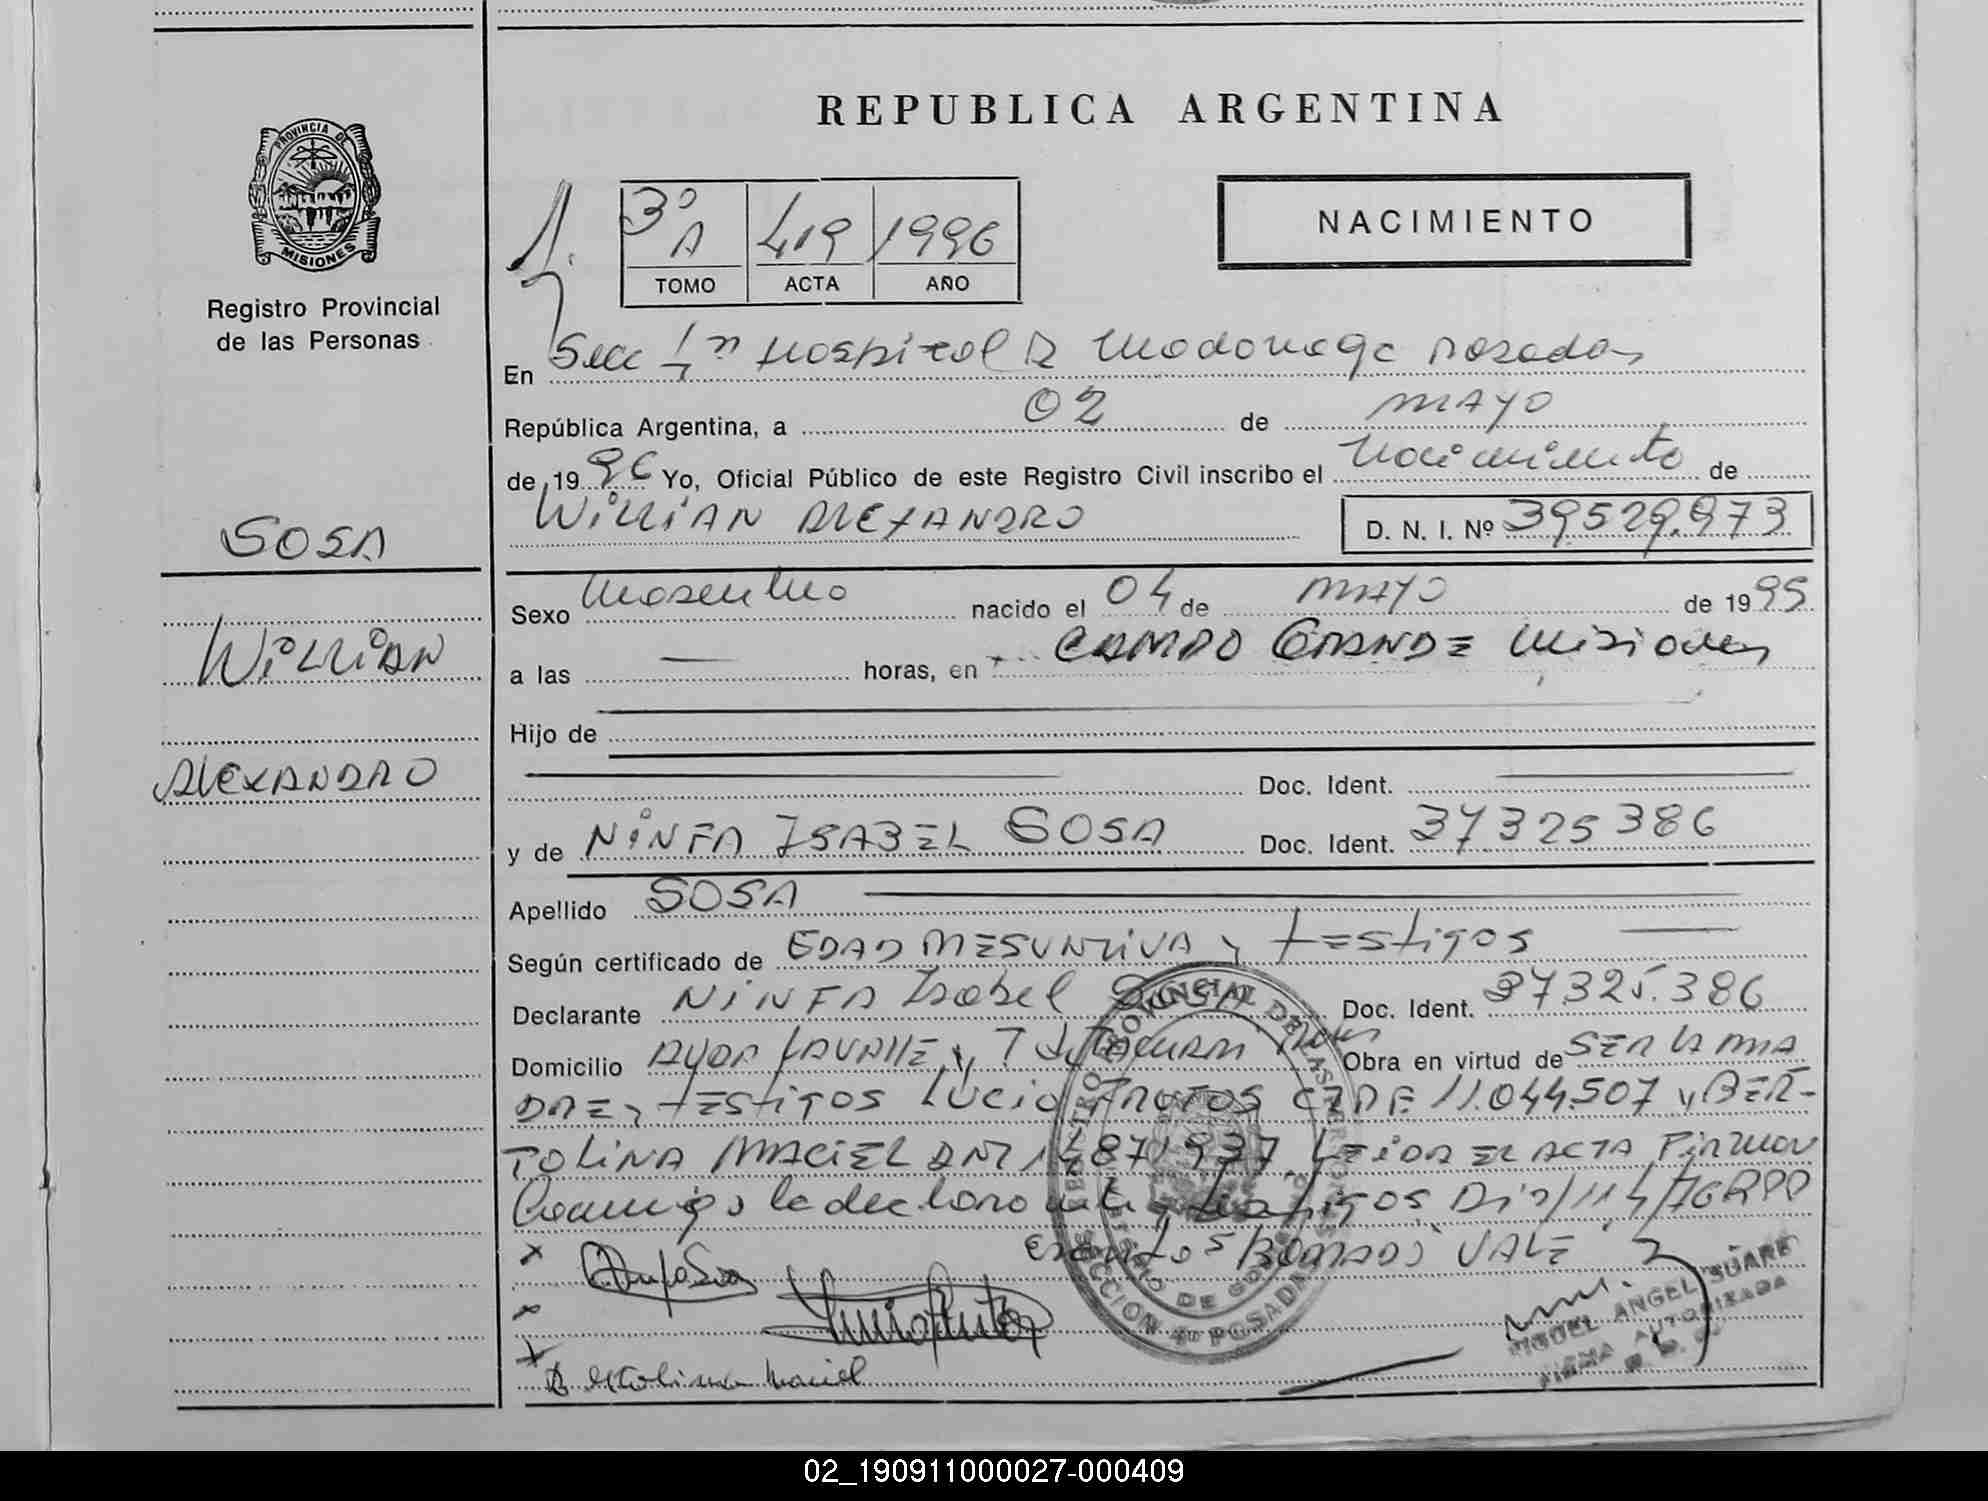 REPUBLICA ARGENTINA
PROVINCIA DE
MISIONES
Registro Provincial
de las Personas
3º A 419 1996
TOMO ACTA AÑO
NACIMIENTO
En Secc 1ra Hospital Dr Madariaga Posadas
República Argentina, a 02 de MAYO
de 1996 Yo, Oficial Público de este Registro Civil inscribo el Nacimiento de
WILLIAN ALEXANDRO D. N. I. Nº 39529.973
SOSA
WILLIAN
ALEXANDRO
Sexo Masculino nacido el 04 de MAYO de 1995
a las — horas, en CAMPO GRANDE Misiones
Hijo de
Doc. Ident.
y de NINFA ISABEL SOSA Doc. Ident. 37325386
Apellido SOSA
Según certificado de EDAD PRESUNTIVA y TESTIGOS
Declarante NINFA Isabel SOSA Doc. Ident. 37.325.386
Domicilio AVDA LAVALLE y Tucuman Obra en virtud de SER LA MA
DRE, TESTIGOS LUCIO FRUTOS 11.044.507 y BER-
TOLINA MACIEL DNI LEIDA EL ACTA Firman
Conmigo la declarante y testigos
VALE
Bertolina Maciel
MIGUEL ANGEL SUAREZ
FIRMA AUTORIZADA
02_190911000027-000409